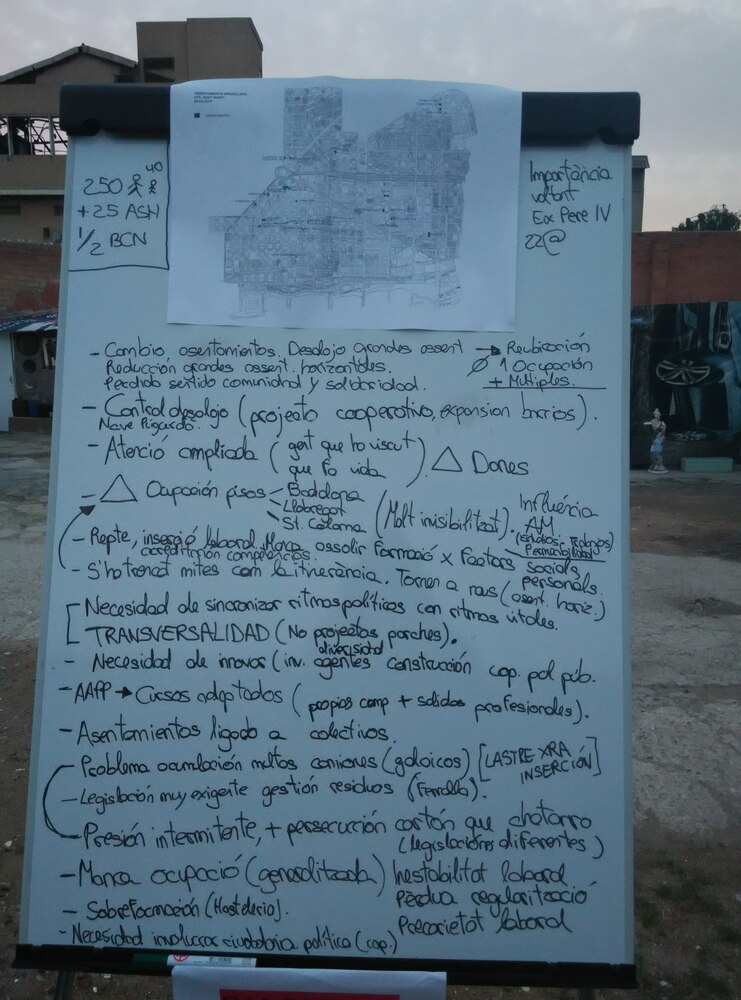 250 40
+25 ASN
1/2 BCN
Importància
voltant
Eix Pere IV
22@
- Cambio asentamientos. Desalojo grandes asent → Reubicación
Reducción grandes asent. horizontales. Ø 1 Ocupación
Perdido sentido comunidad y solidaridad. + Múltiples.
- Control desalojo (projecto cooperativo, expansion barrios).
Nave
- Atenció ampliada (gent que ho viscut
que fa vida) △ Dones
- △ Ocupación pisos Badalona
Llobregat
St. Coloma (Molt invisibilitzat).
Influència
AM
Permeabilidad
- Repte, inserció laboral. Manca assolir Formació x Factors socials
acreditación competencias personals.
- S'ha trencat mites com la itinerància. Tornen a naus (asent. horiz.)
[Necesidad de sincronizar ritmos políticos con ritmos vitales.
TRANSVERSALIDAD (No projectos parches).
diversidad
- Necesidad de innovar (inv. agentes construcción cop. pol. púb.
- AAPP → Cursos adaptados (propias comp + salidas profesionales).
- Asentamientos ligado a colectivos.
- Problema acumulación multas camiones (galaicos) [LASTRE XRA
INSERCIÓN]
- Legislación muy exigente gestión residuos (Ferralla).
- Presión intermitente, + persecución cartón que chatarra
(legislacións diferentes)
- Manca ocupació (generalitzada) Inestabilitat laboral
Pèrdua regularització
Precarietat laboral
- Sobreformación (Hostelería).
- Necesidad involucrar ciudadania política (cap.)